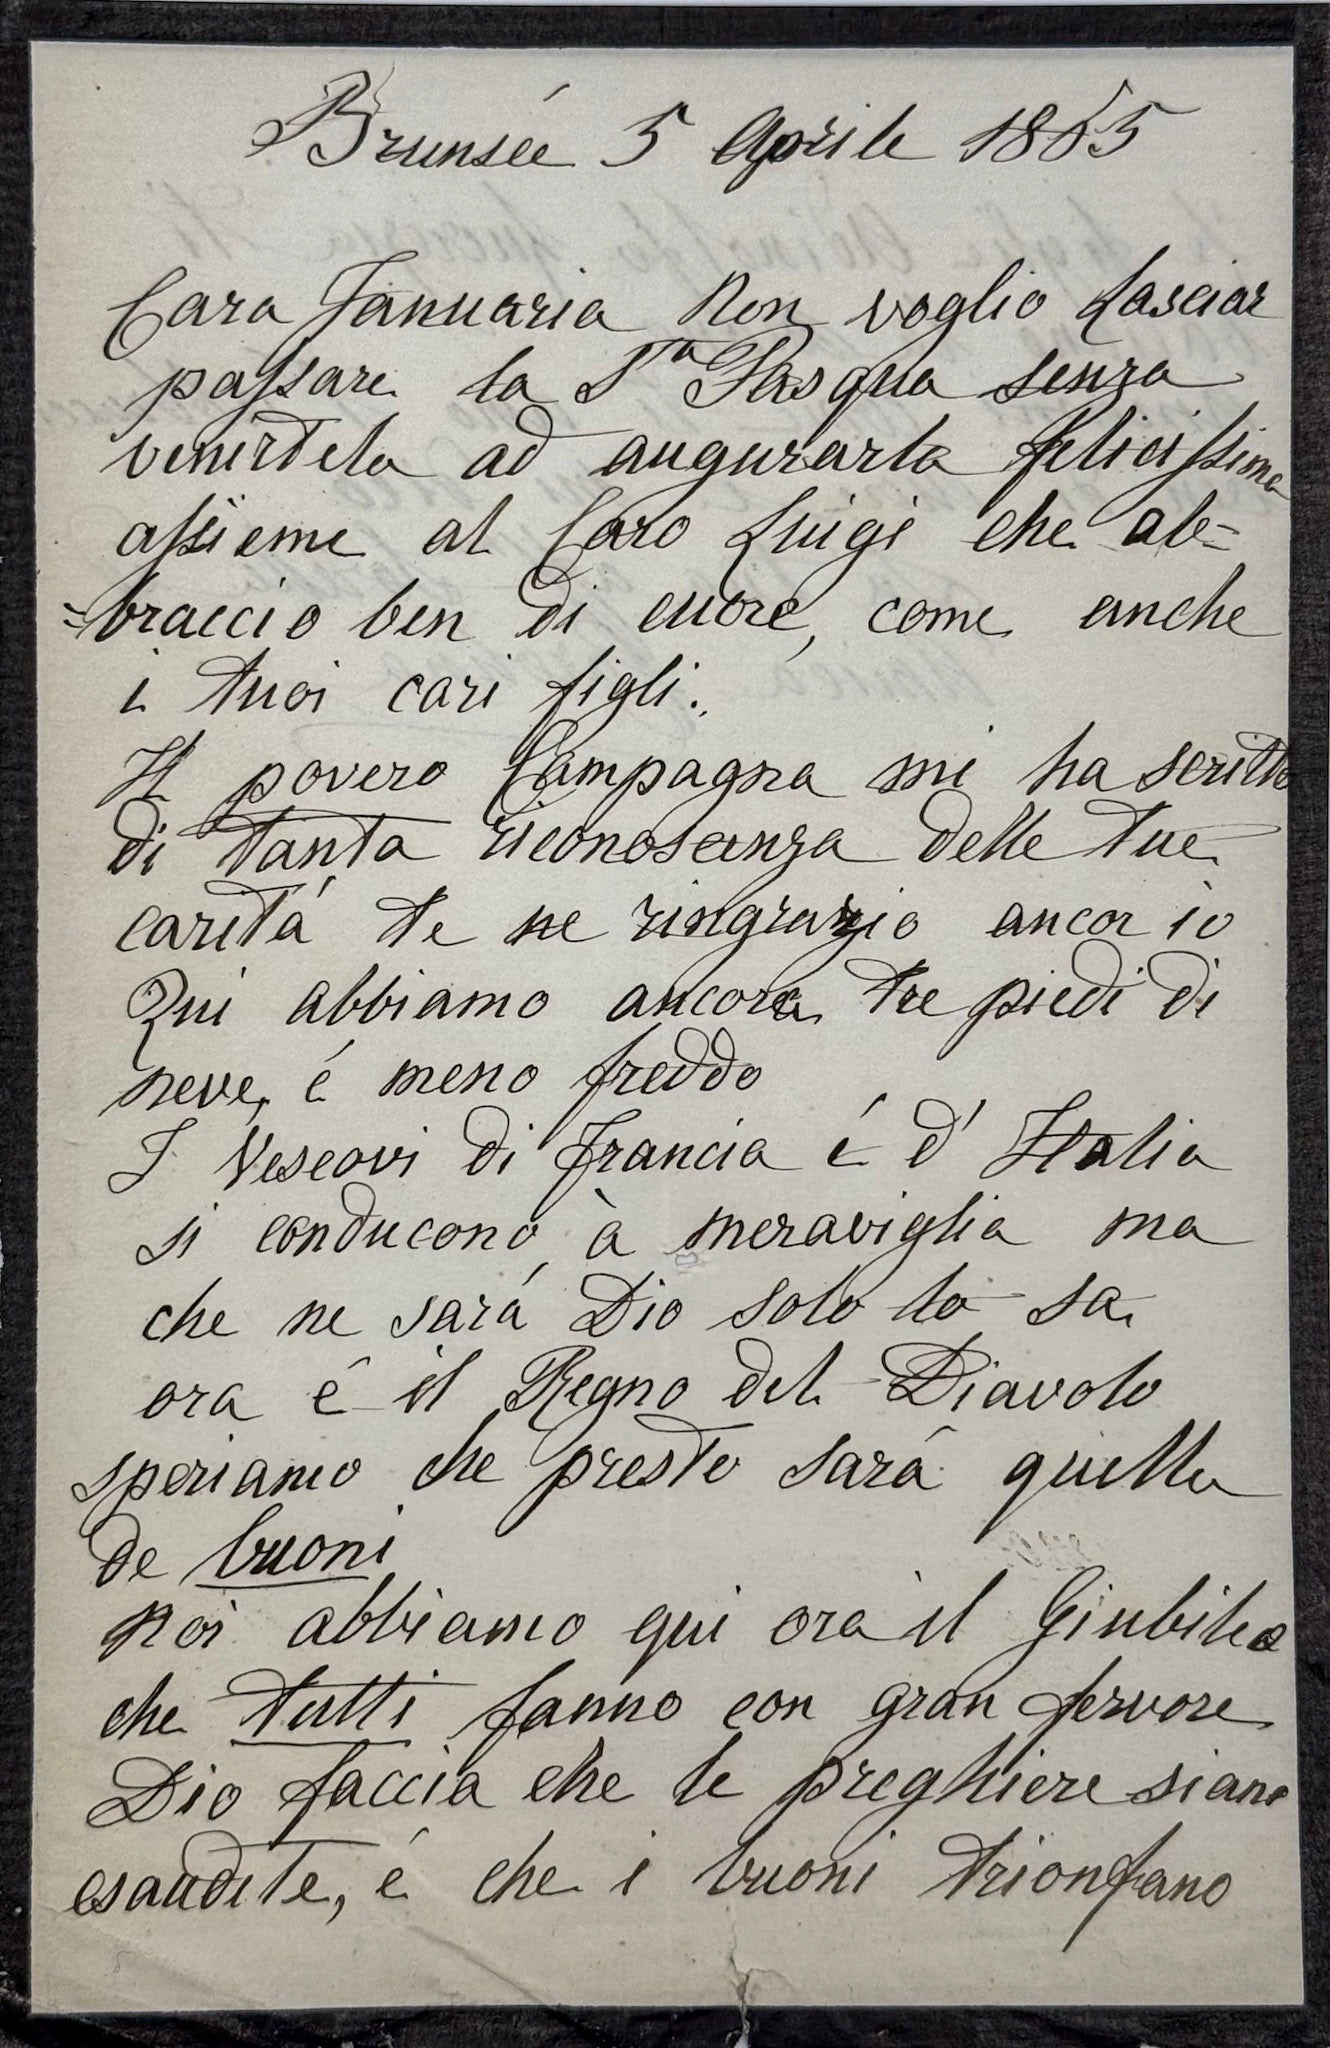 Brunsée 5 Aprile 1865
Cara Januaria Non voglio Lasciar
passare la Sta Pasqua senza
venirtela ad augurarla felicissima
assieme al Caro Luigi che ab=
=braccio ben di cuore, come anche
i tuoi cari figli.
Il povero Campagna mi ha scritto
di tanta riconoscanza delle tue
caritá te ne ringrazio ancor io
Qui abbiamo ancora tre piedi di
neve, é meno freddo
I Vescovi di Francia é d' Italia
si conducono à meraviglia ma
che ne sará Dio solo lo sa
ora é il Regno del Diavolo
speriamo che presto sará quello
de buoni
Noi abbiamo qui ora il Giubileo
che tutti fanno con gran fervore
Dio faccia che le preghiere siano
esaudite, é che i buoni trionfano